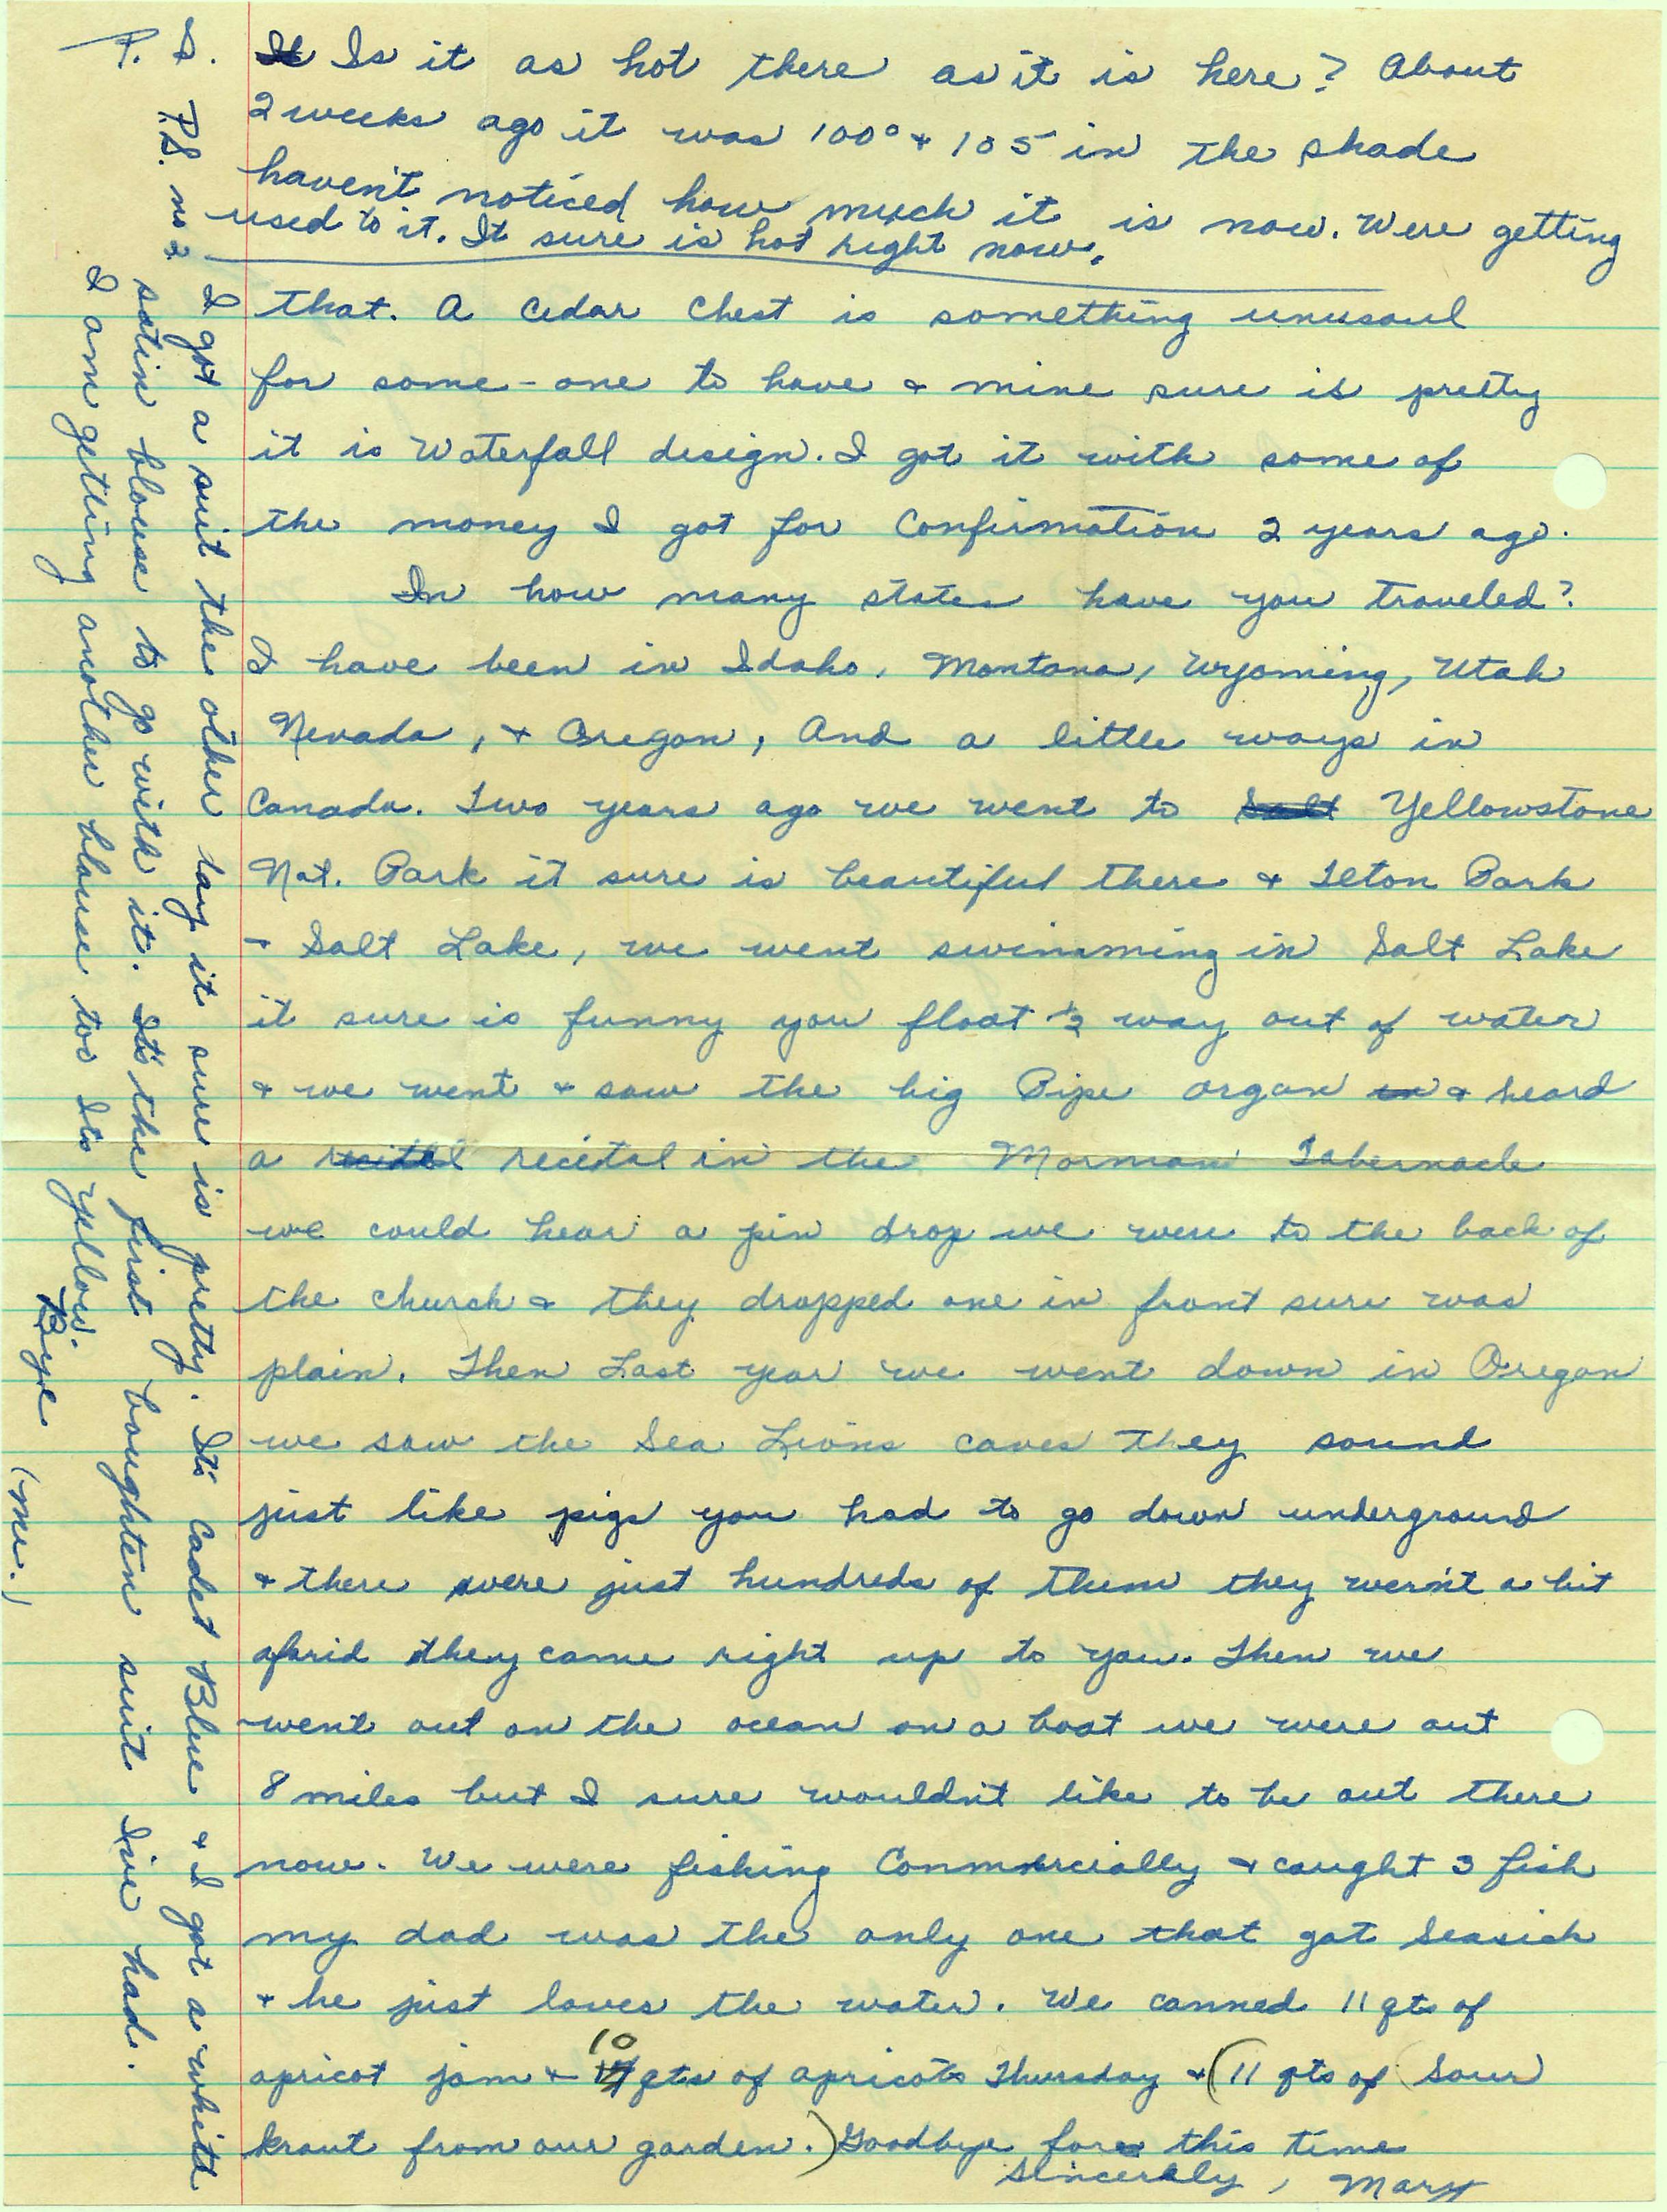 P. S. Is it as hot there as it is here? About
2 weeks ago it was 100° & 105 in the shade
haven't noticed how much it is now. Were getting
used to it. It sure is hot right now.
that. A cedar chest is something unusaul
for some-one to have & mine sure is pretty
it is Waterfall design. I got it with some of
the money I got for Confirmation 2 years ago.
In how many states have you traveled?
I have been in Idaho, Montana, Wyoming, Utah
Nevada, & Oregon, And a little ways in
Canada. Two years ago we went to Salt Yellowstone
Nat. Park it sure is beautiful there & Teton Park
& Salt Lake, we went swimming in Salt Lake
it sure is funny you float ½ way out of water
& we went & saw the big Pipe organ in & heard
a recital recital in the Morman Tabernacle
we could hear a pin drop we were to the back of
the church & they dropped one in front sure was
plain. Then Last year we went down in Oregon
we saw the Sea Lions caves they sound
just like pigs you had to go down underground
& there were just hundreds of them they wern't a bit
afarid they came right up to you. Then we
went out on the ocean on a boat we were out
8 miles but I sure wouldn't like to be out there
now. We were fishing Commercially & caught 3 fish
my dad was the only one that got seasick
& he just loves the water. We canned 11 qts of
apricot jam & 10 qts of apricots Thursday & (11 qts of Sour
kraut from our garden.) Goodbye for this time
Sincerely, Mary
P.S. no 2 I got a suit the other day it sure is pretty. It's Cadet Blue & I got a white
satin blouse to go with it. It's the first boughten suit I've had.
I am getting another blouse too Its yellow.
Bye (me.)